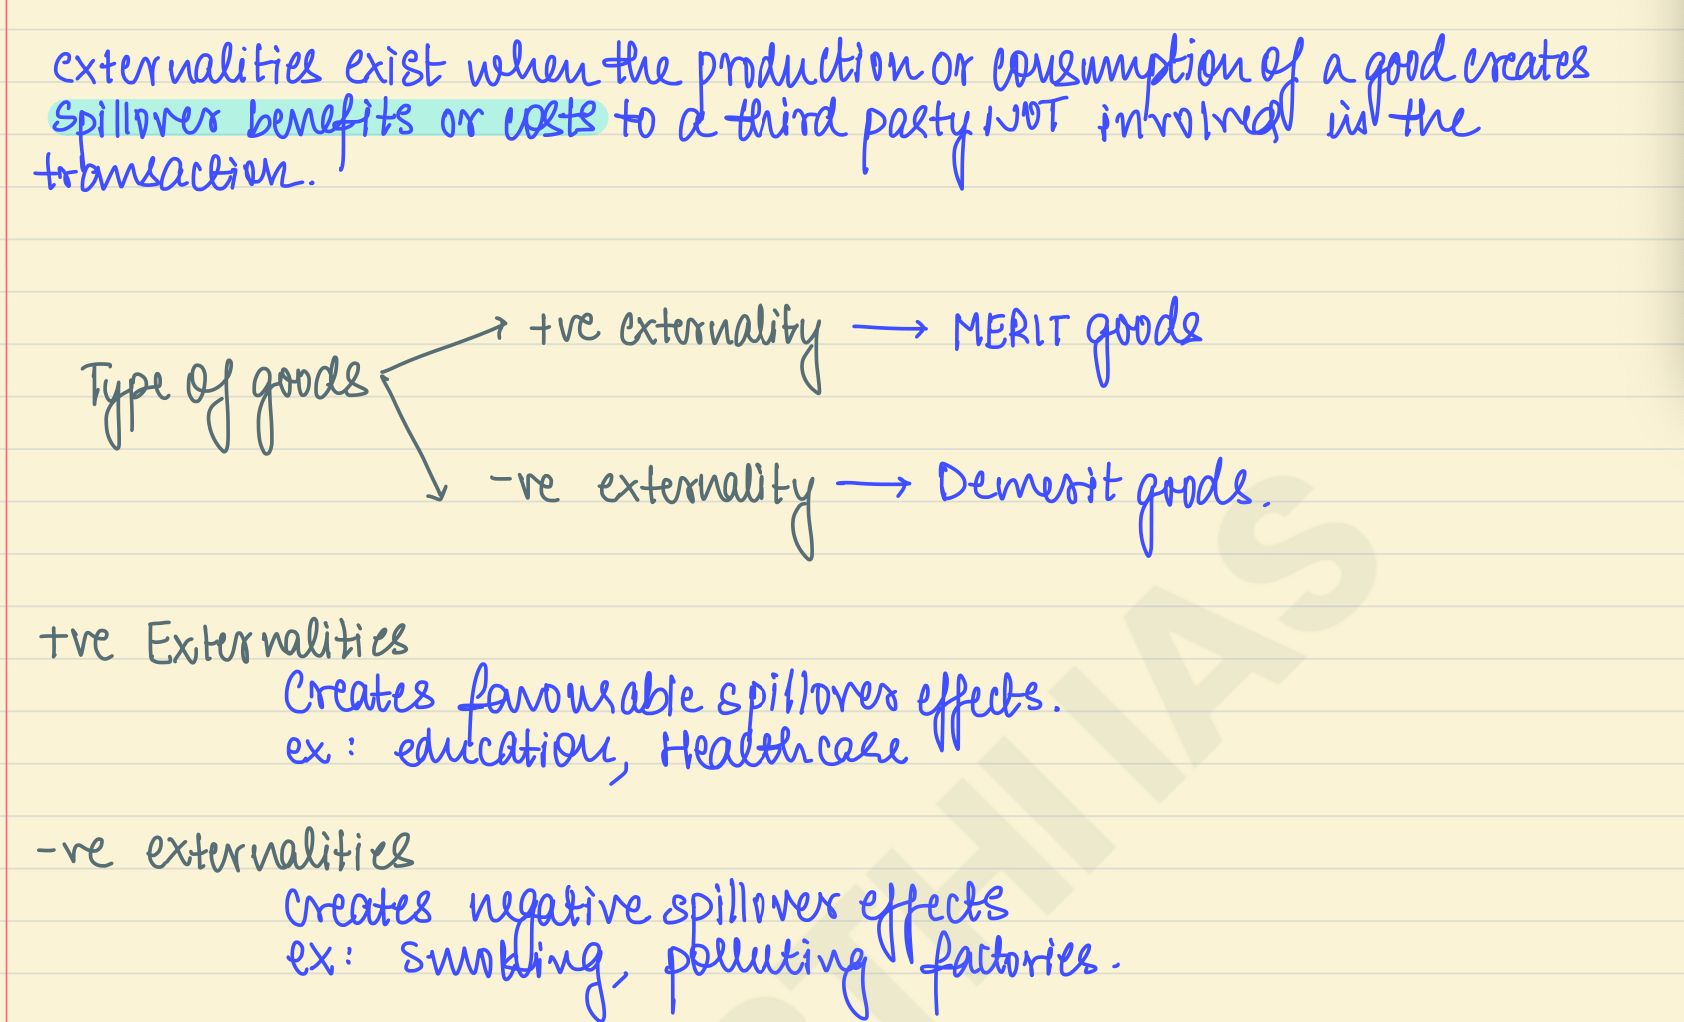 externalities exist when the production or consumption of a good creates
spillover benefits or costs to a third party NOT involved in the
transaction.
+ve externality → MERIT goods
Type of goods
-ve externality → Demerit goods.
+ve Externalities
Creates favourable spillover effects.
ex: education, Healthcare
-ve externalities
creates negative spillover effects
ex: smoking, polluting factories.
THI IAS